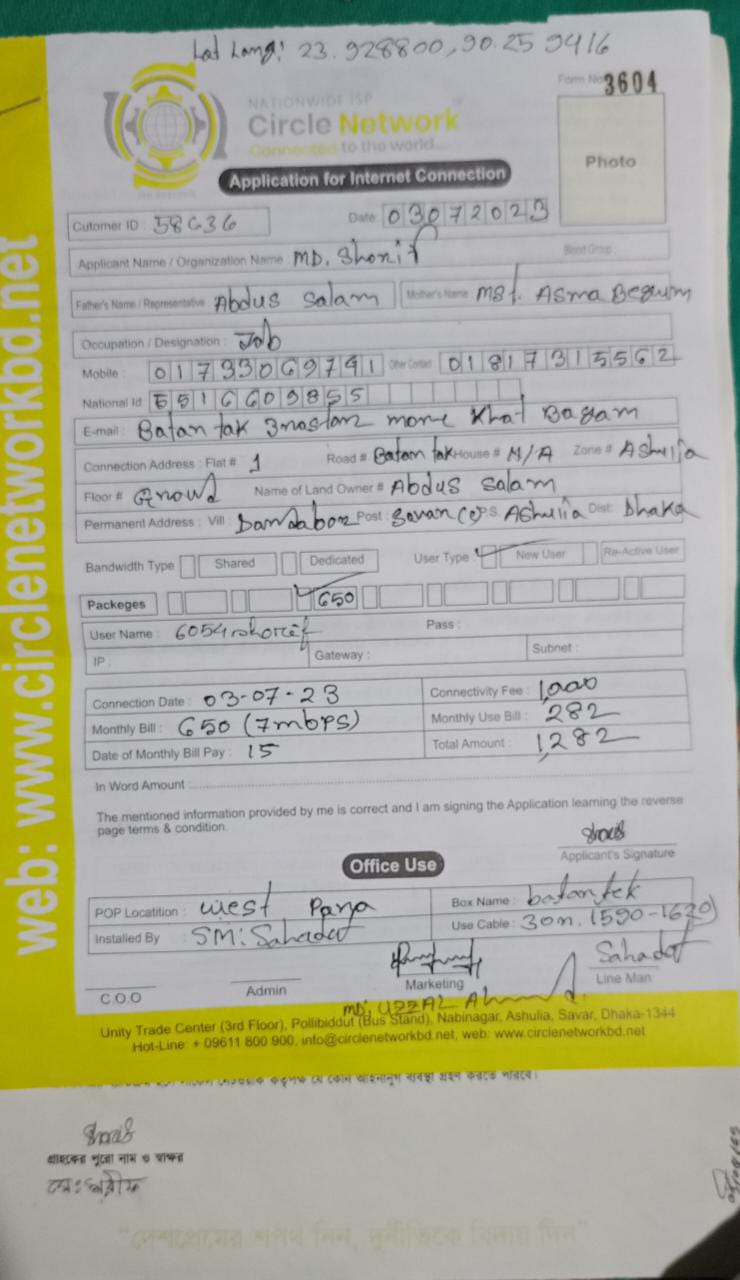 Lat Long: 23.928800, 90.259416
Form No 3604
NATIONWIDE ISP
Circle Network
Connected to the world...
Photo
Application for Internet Connection
Cutomer ID : 58636 Date 03072023
Applicant Name / Organization Name : MD. Shorif Blood Group :
Father's Name / Representative : Abdus Salam Mother's Name : MST. Asma Begum
Occupation / Designation : Job
Mobile : 01733069741 Other Contact 01817315562
National Id 5516609855
E-mail : Batan tak more Khat Bagam
Connection Address : Flat # 1 Road # Batan tak House # N/A Zone # Ashulia
Floor # Name of Land Owner # Abdus Salam
Permanent Address : Vill : Post : P.S. Ashulia Dist: Dhaka
Bandwidth Type Shared Dedicated User Type : New User Re-Active User
Packeges 650
User Name : Pass :
IP : Gateway : Subnet :
Connection Date : 03-07-23 Connectivity Fee : 1,000
Monthly Bill : 650 (7mbps) Monthly Use Bill : 282
Date of Monthly Bill Pay : 15 Total Amount : 1,282
In Word Amount :
The mentioned information provided by me is correct and I am signing the Application learning the reverse
page terms & condition.
Applicant's Signature
Office Use
POP Locatition : West Para Box Name : batan tek
Installed By : SM: Sahadat Use Cable : 30m. (1590-1620)
Sahadat
C.O.O Admin Marketing Line Man
MD. UZZAL Ahmed
Unity Trade Center (3rd Floor), Pollibiddut (Bus Stand), Nabinagar, Ashulia, Savar, Dhaka-1344
Hot-Line: + 09611 800 900, info@circlenetworkbd.net, web: www.circlenetworkbd.net
web: www.circlenetworkbd.net
গ্রাহকের পুরো নাম ও স্বাক্ষর
মো: শরীফ
"দেশপ্রেমের শপথ নিন, দুর্নীতিকে বিদায় দিন"